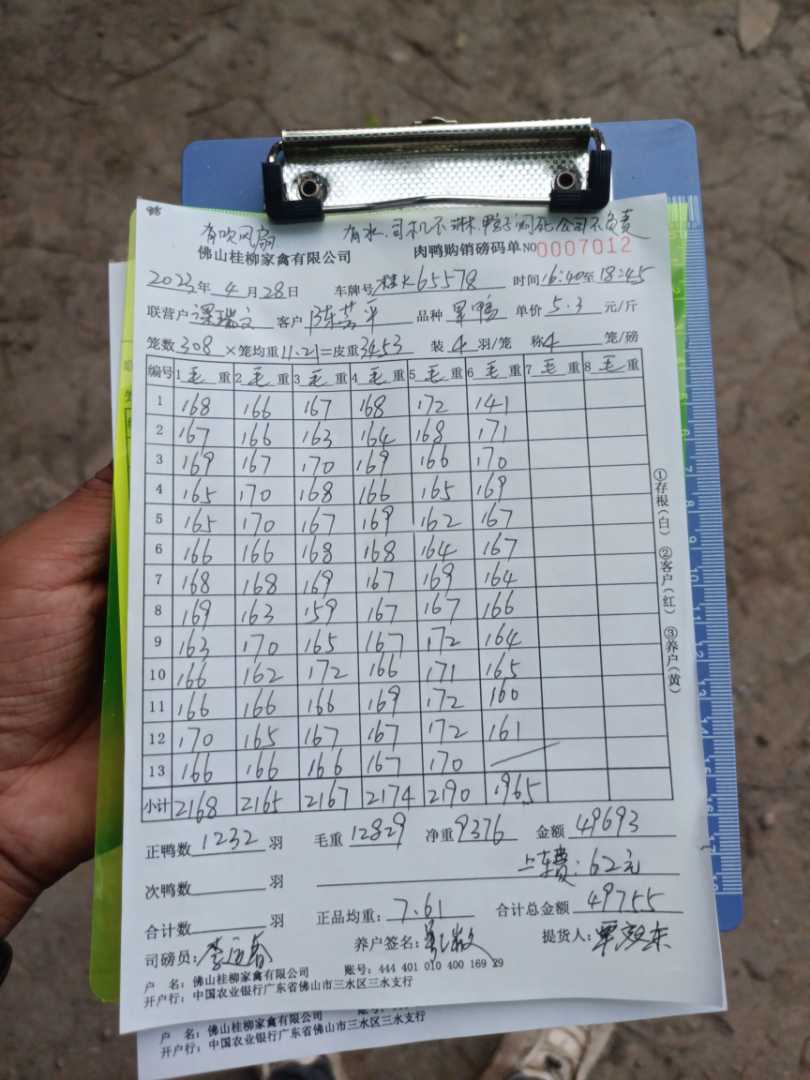 有吹风扇 有水.司机不淋.鸭子闷死公司不负责
佛山桂柳家禽有限公司 肉鸭购销磅码单 NO 0007012
2023年4月28日 车牌号 桂K65578 时间16:40至18:45
联营户 客户 陈芸平 品种 单价5.3元/斤
笼数308×笼均重11.21=皮重3453 装4羽/笼 称4笼/磅
编号 1毛重 2毛重 3毛重 4毛重 5毛重 6毛重 7毛重 8毛重
1 168 166 167 168 172 141
2 167 166 163 164 168 171
3 169 167 170 169 166 170
4 165 170 168 166 165 169
5 165 170 167 169 162 167
6 166 166 168 168 164 167
7 168 168 169 167 169 164
8 169 163 159 167 167 166
9 163 170 165 167 172 164
10 166 162 172 166 171 165
11 166 166 166 169 172 160
12 170 165 167 167 172 161
13 166 166 166 167 170
小计 2168 2165 2167 2174 2190 1965
正鸭数1232羽 毛重12829 净重9376 金额49693
次鸭数 羽 上车费:62元
合计数 羽 正品均重:7.61 合计总金额49755
司磅员: 养户签名: 提货人:
户 名:佛山桂柳家禽有限公司 账号:444 401 010 400 169 29
开户行:中国农业银行广东省佛山市三水区三水支行
①存根(白) ②客户(红) ③养户(黄)
户 名:佛山桂柳家禽有限公司
开户行:中国农业银行广东省佛山市三水区三水支行